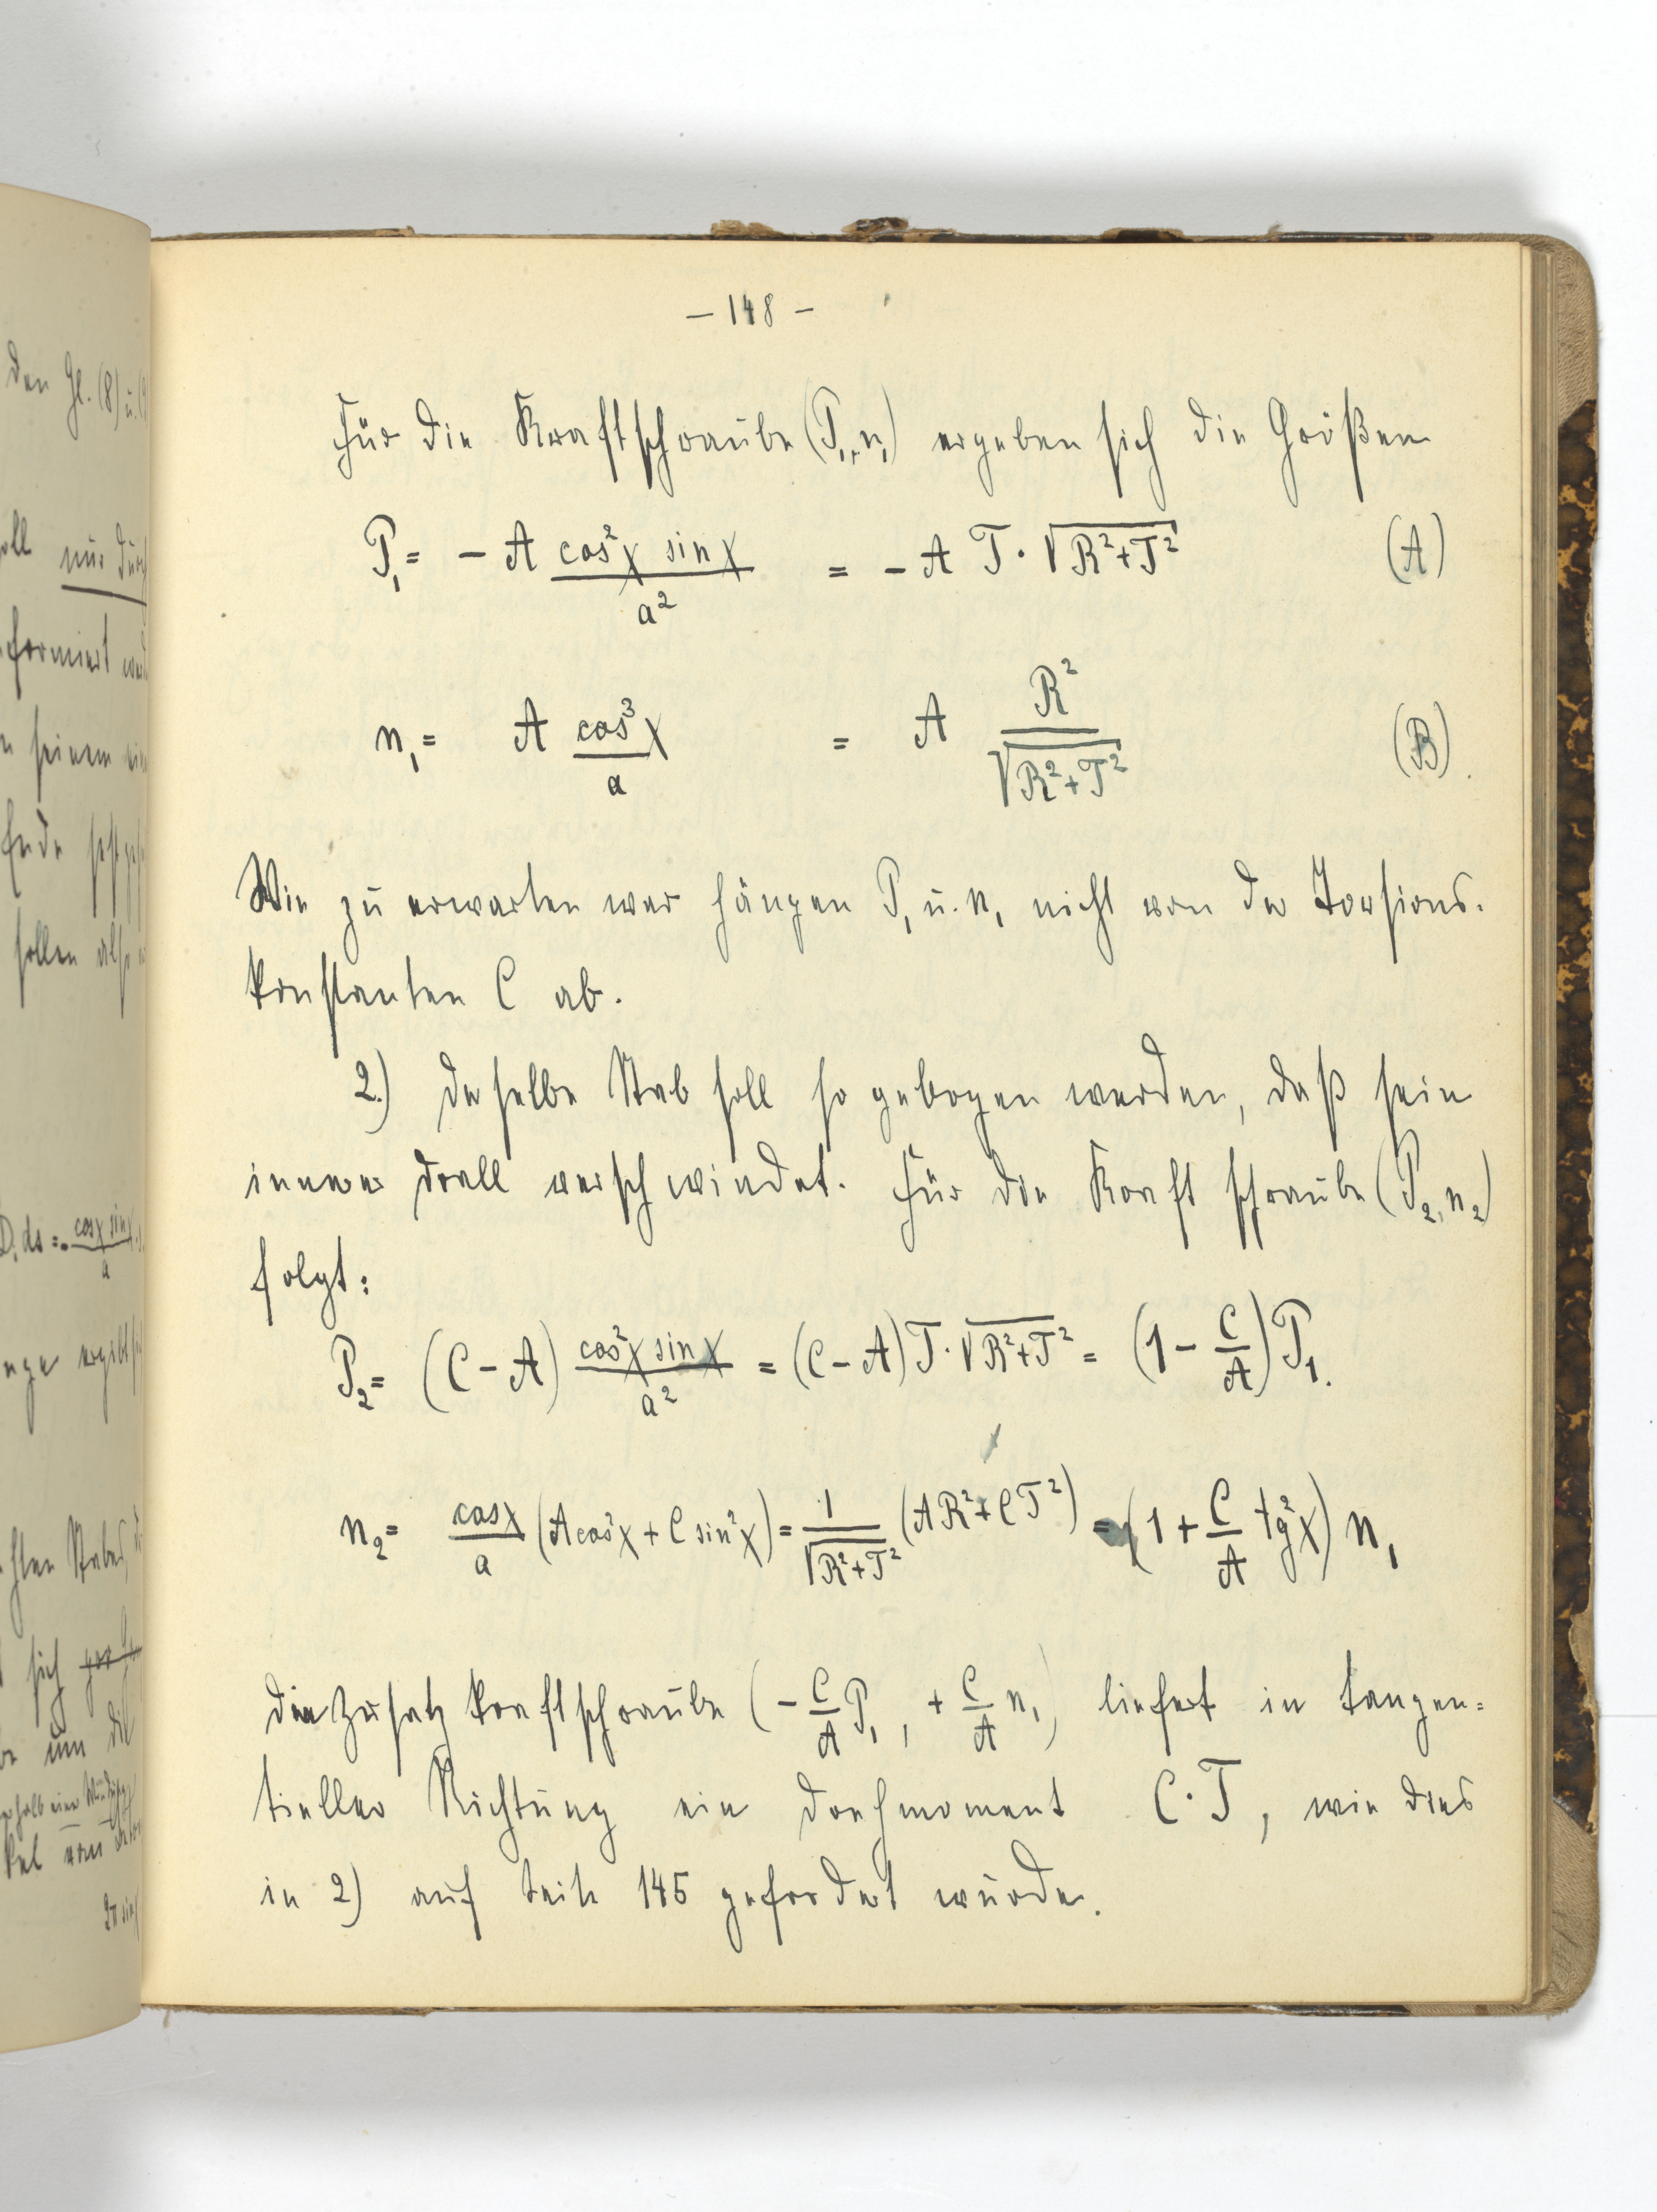 – 148 –
Für die Kraftschraube (P₁, n₁) ergeben sich die Größen
P₁ = – A cos²χ sinχ / a² = – A T · √(R²+T²) (A)
n₁ = A cos³χ / a = A R² / √(R²+T²) (B).
Wie zu erwarten war hängen P₁ u. n₁ nicht von der Torsions-
konstanten C ab.
2.) Derselbe Stab soll so gebogen werden, daß sein
innerer Drall verschwindet. Für die Kraftschraube (P₂, n₂)
folgt:
P₂ = (C – A) cos²χ sinχ / a² = (C – A) T · √(R²+T²) = (1 – C/A) P₁.
n₂ = cosχ / a (A cos²χ + C sin²χ) = 1 / √(R²+T²) (AR² + CT²) = (1 + C/A tg²χ) n₁
Die Zusatzkraftschraube (– C/A P₁, + C/A n₁) liefert in tangen=
tieller Richtung ein Drehmoment C · T, wie dies
in 2) auf Seite 145 gefordert wurde.
den Gl. (8) u.
soll nur durch
seinem
Ende
sollen also
D. ds = cosχ sinχ / a
sich
um die